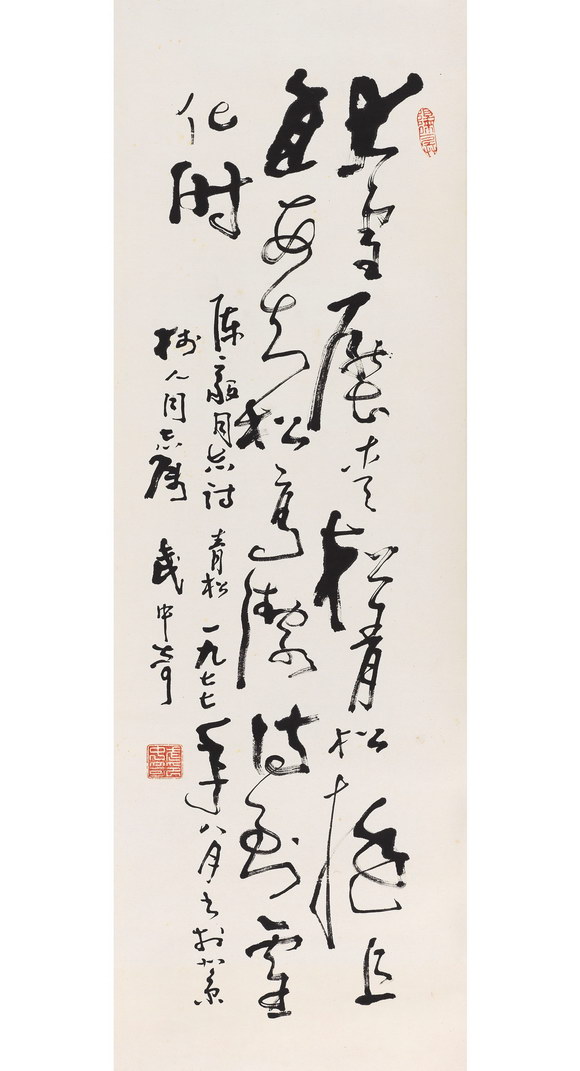 大雪壓青松青松挺且
直要知松高潔待到雪
化时
陈毅同志诗 青松 一九七七年八月书於北京
树人同志属 武中奇